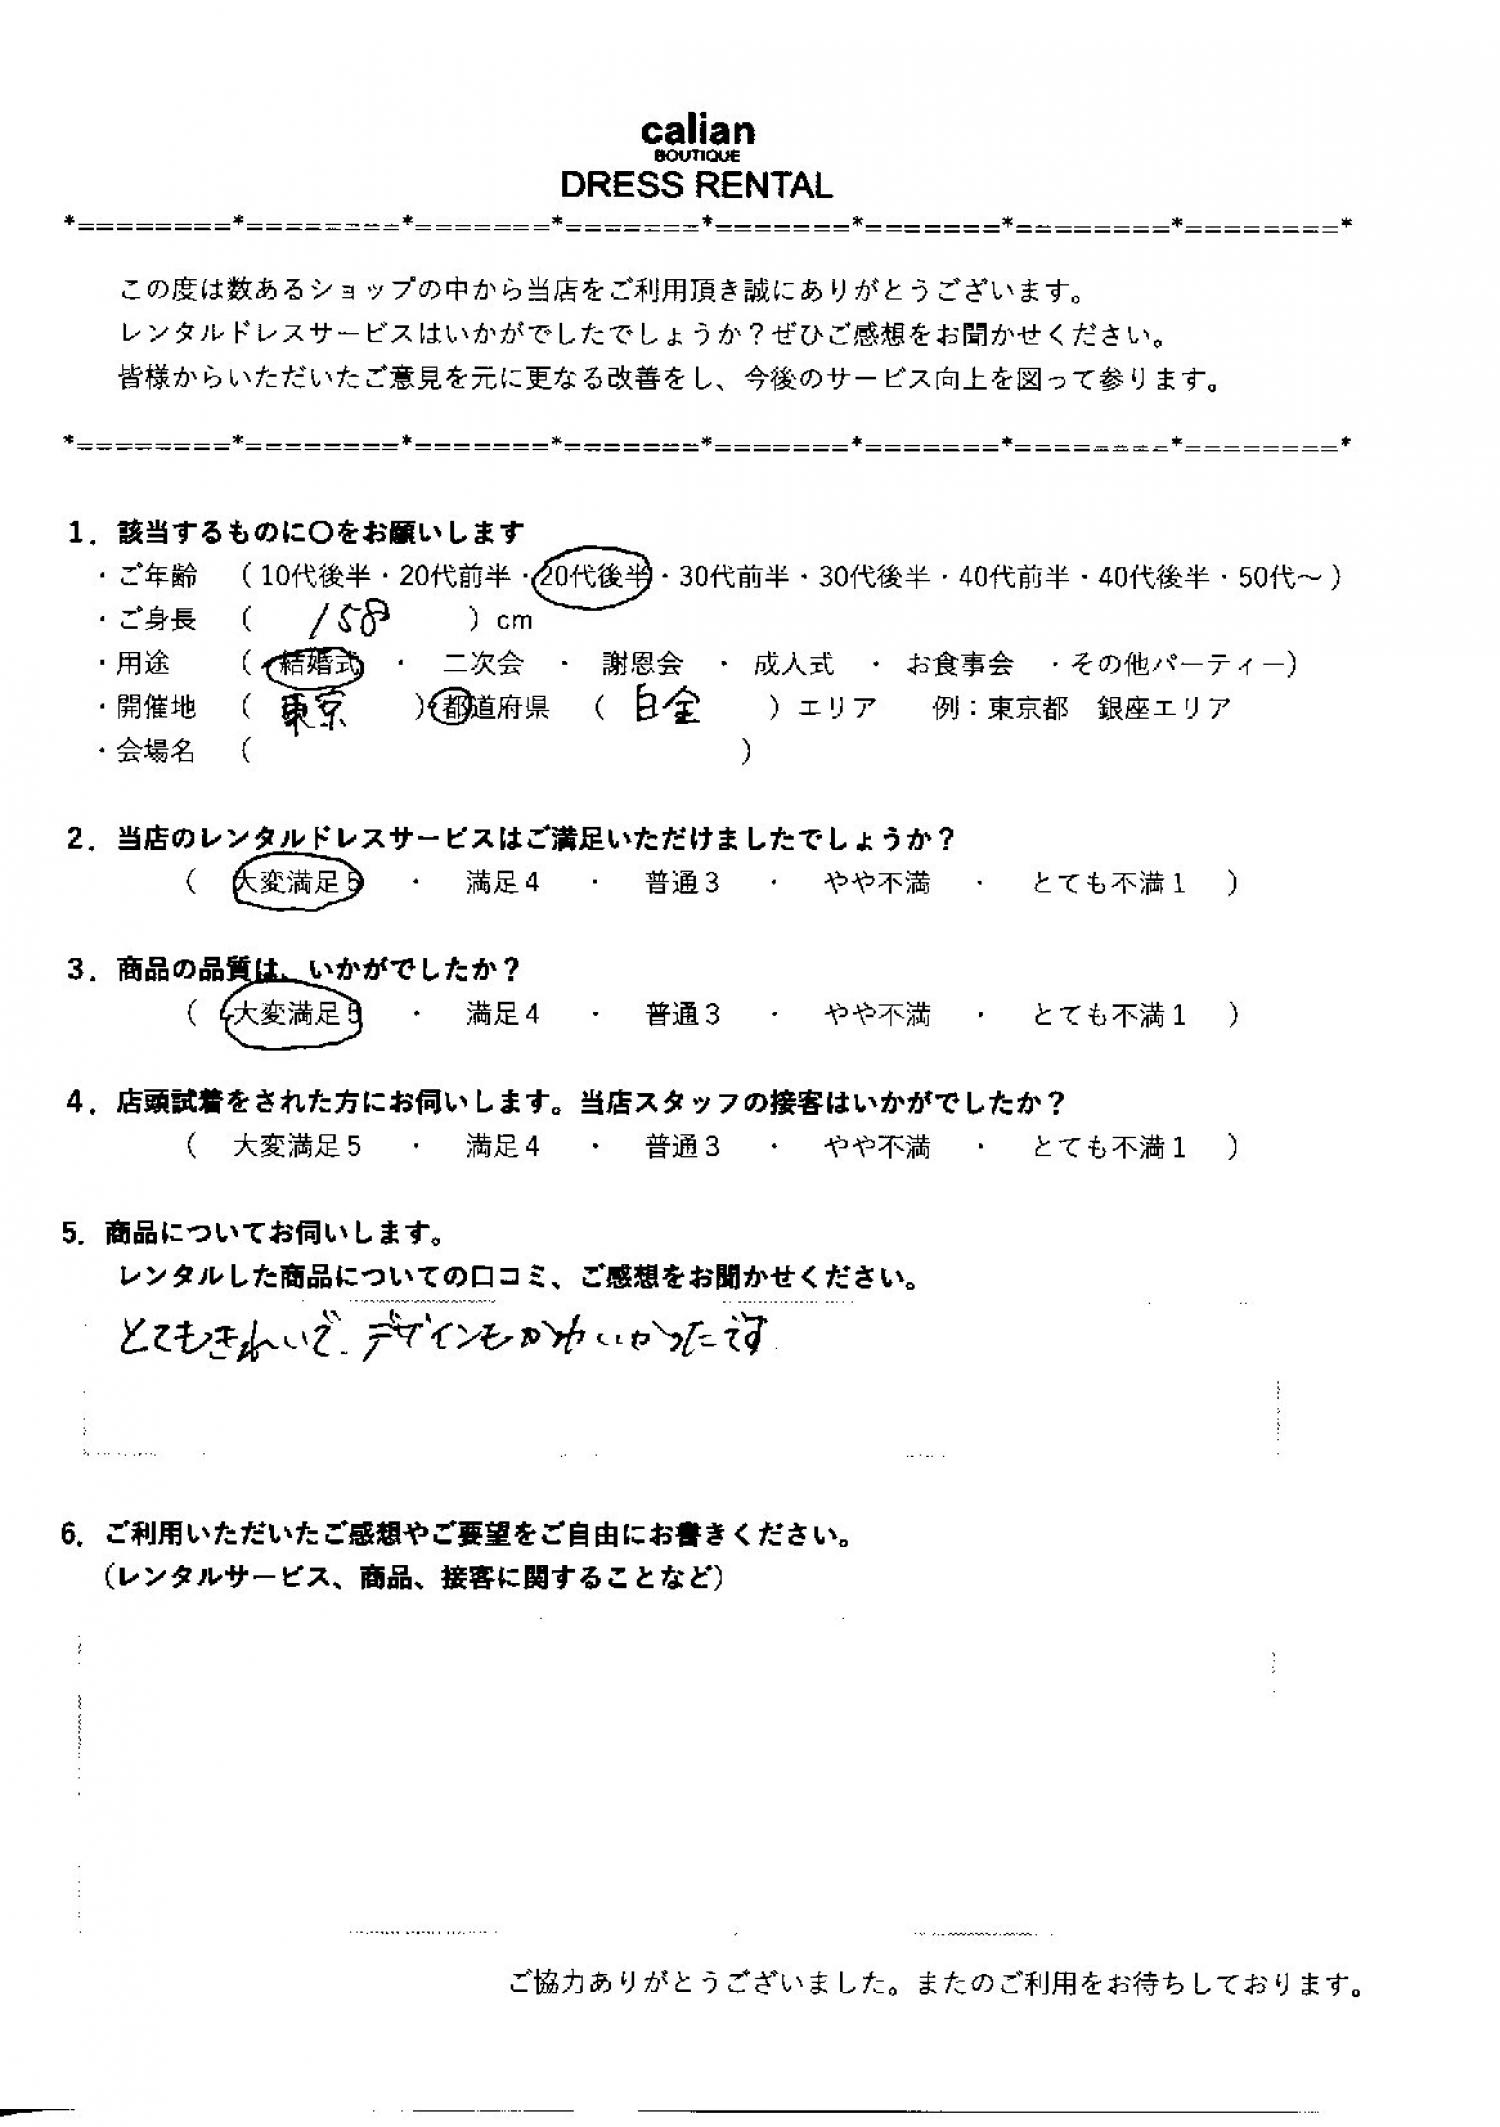 calian
BOUTIQUE
DRESS RENTAL
*========*========*=======*=======*=======*=======*========*========*
この度は数あるショップの中から当店をご利用頂き誠にありがとうございます。
レンタルドレスサービスはいかがでしたでしょうか？ぜひご感想をお聞かせください。
皆様からいただいたご意見を元に更なる改善をし、今後のサービス向上を図って参ります。
*========*========*=======*=======*=======*=======*========*========*
1．該当するものに〇をお願いします
・ご年齢 （10代後半・20代前半・20代後半・30代前半・30代後半・40代前半・40代後半・50代～）
・ご身長 （ 158 ）cm
・用途 （ 結婚式 ・ 二次会 ・ 謝恩会 ・ 成人式 ・ お食事会 ・その他パーティー）
・開催地 （ 東京 ）都道府県 （ 白金 ）エリア 例：東京都 銀座エリア
・会場名 （ ）
2．当店のレンタルドレスサービスはご満足いただけましたでしょうか？
（ 大変満足5 ・ 満足4 ・ 普通3 ・ やや不満 ・ とても不満1 ）
3．商品の品質は、いかがでしたか？
（ 大変満足5 ・ 満足4 ・ 普通3 ・ やや不満 ・ とても不満1 ）
4．店頭試着をされた方にお伺いします。当店スタッフの接客はいかがでしたか？
（ 大変満足5 ・ 満足4 ・ 普通3 ・ やや不満 ・ とても不満1 ）
5．商品についてお伺いします。
レンタルした商品についての口コミ、ご感想をお聞かせください。
とてもきれいで、デザインもかわいかったです
6．ご利用いただいたご感想やご要望をご自由にお書きください。
（レンタルサービス、商品、接客に関することなど）
ご協力ありがとうございました。またのご利用をお待ちしております。